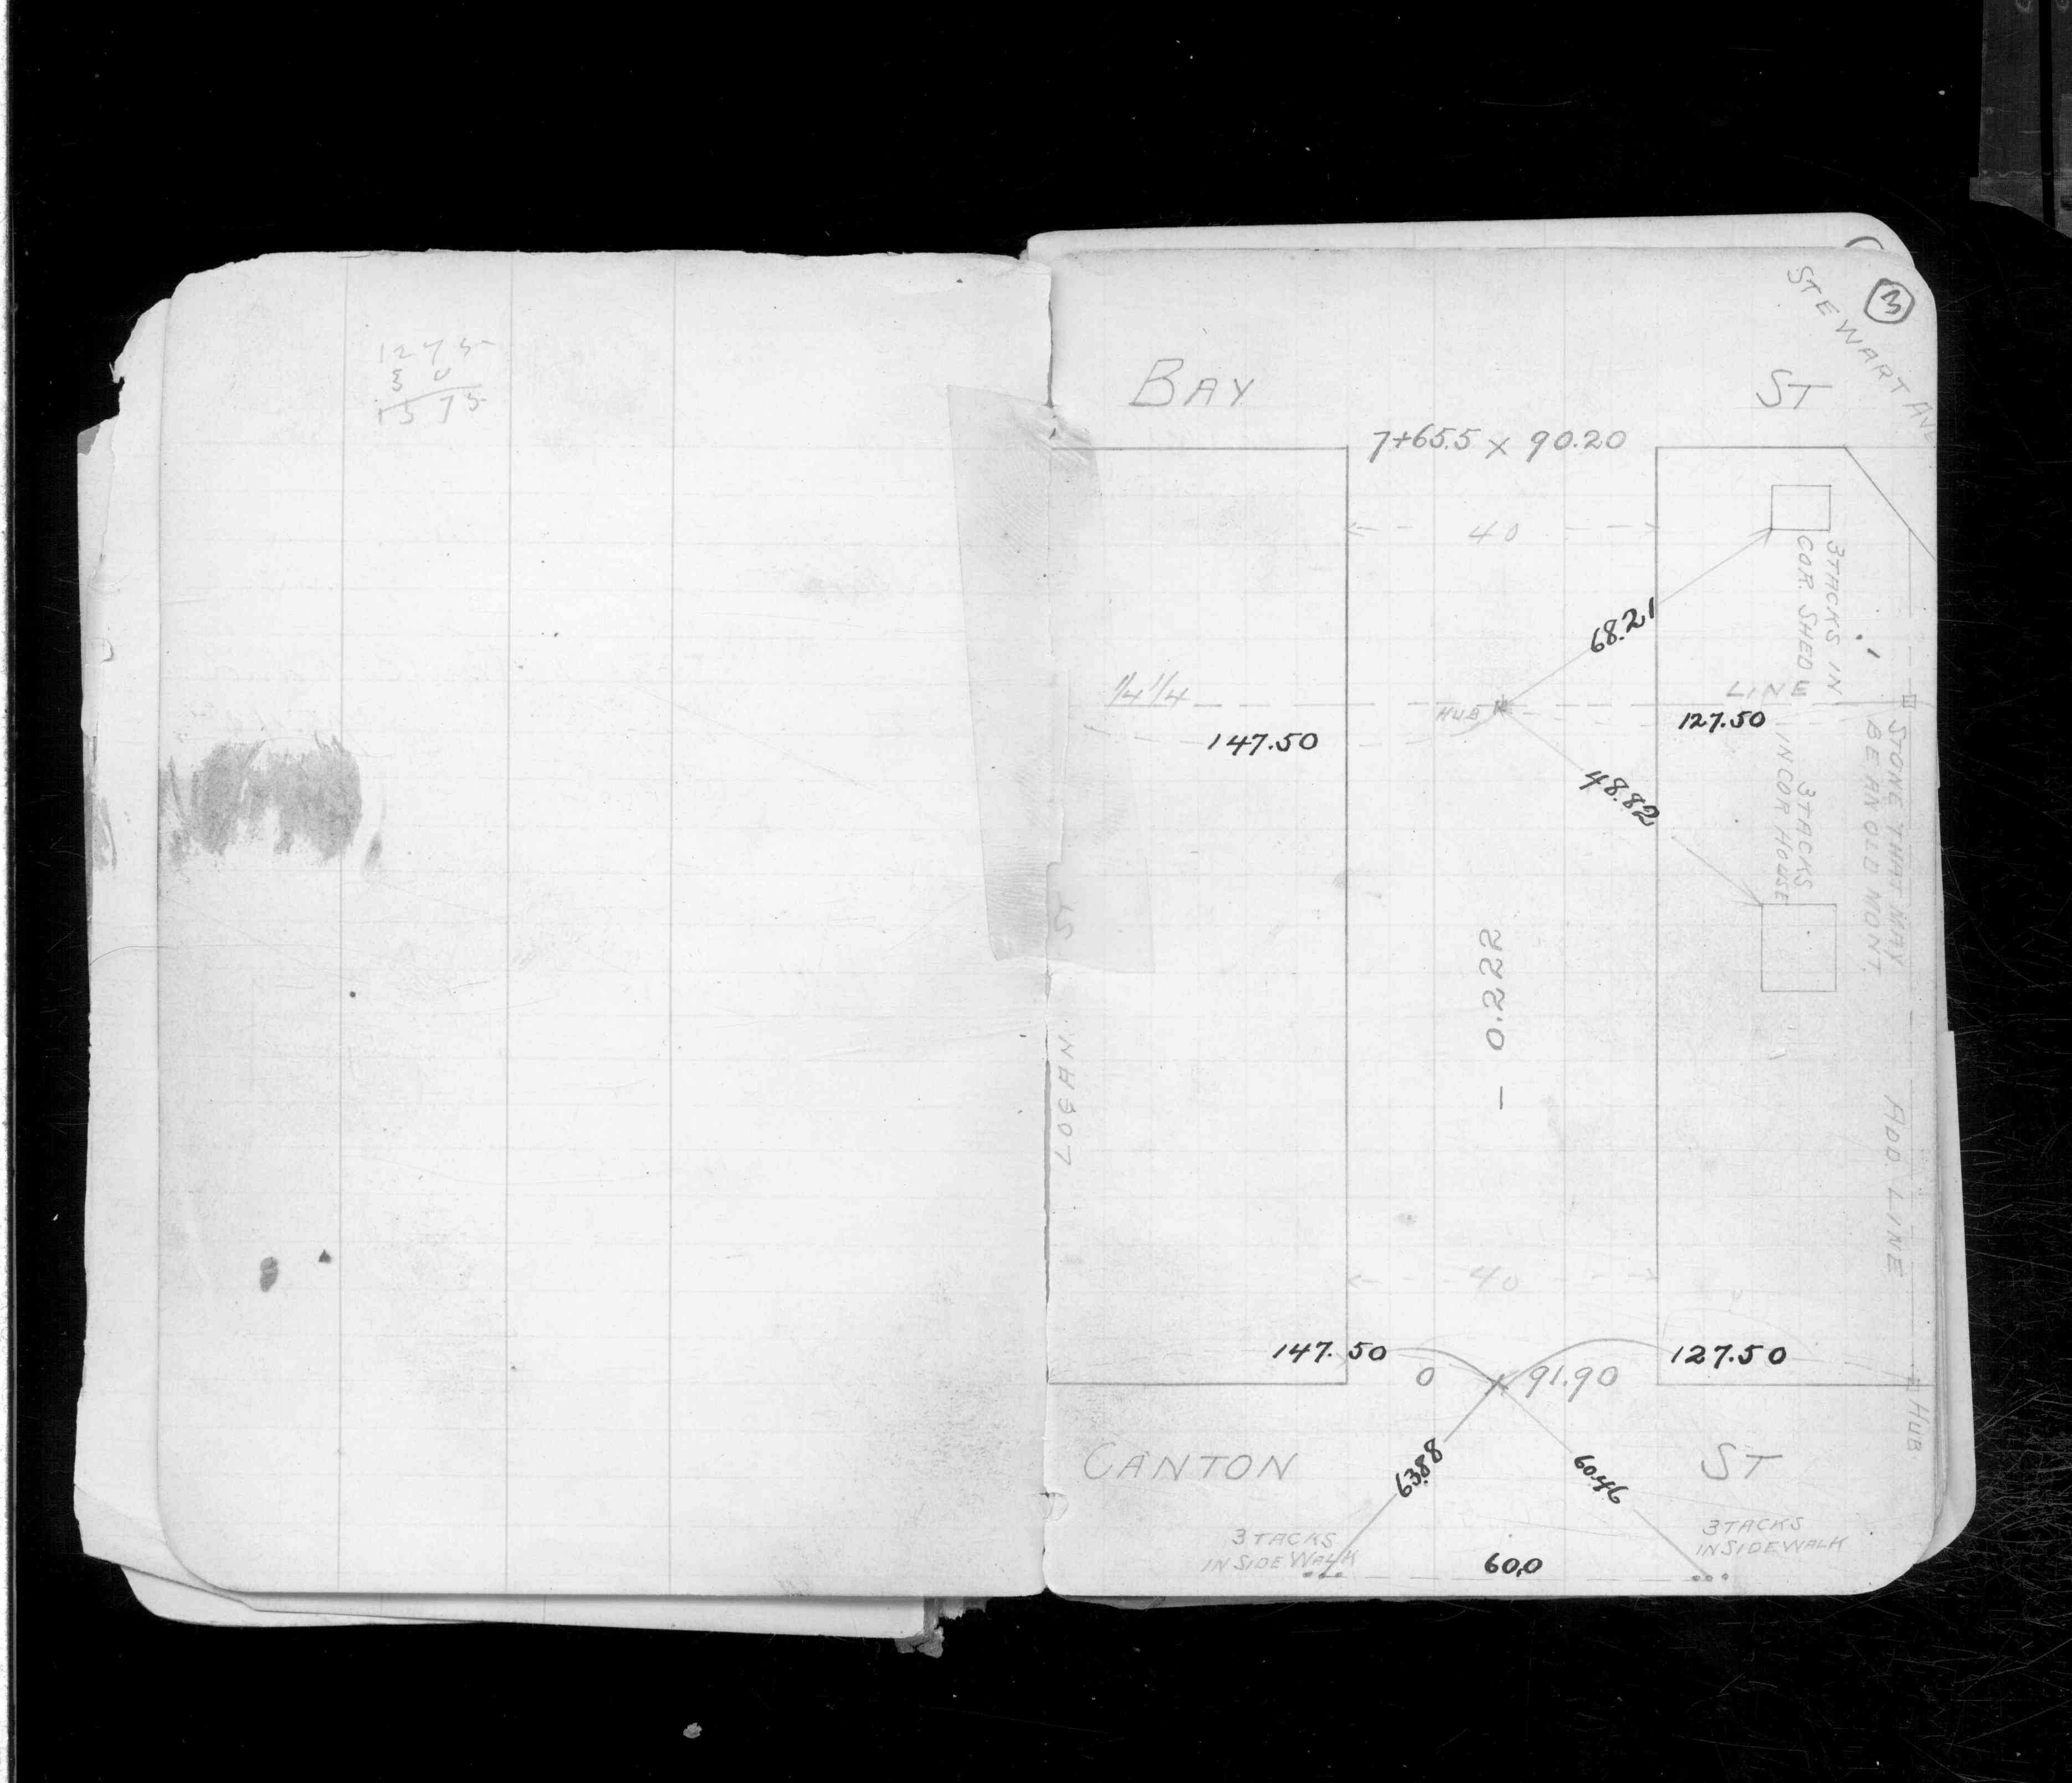 1275
30
1575
3
STEWART AVE
BAY ST
7+65.5 x 90.20
40
3 TACKS IN
COR. SHED
68.21
1/4 1/4 LINE
HUB
147.50
127.50
48.82
3 TACKS
IN COR HOUSE
STONE THAT MAY
BE AN OLD MONT.
- 0.222
LOGAN ST
ADD. LINE
40
147.50
127.50
0
91.90
HUB
CANTON ST
63.88
60.46
3 TACKS
IN SIDEWALK
3 TACKS
IN SIDEWALK
60.0